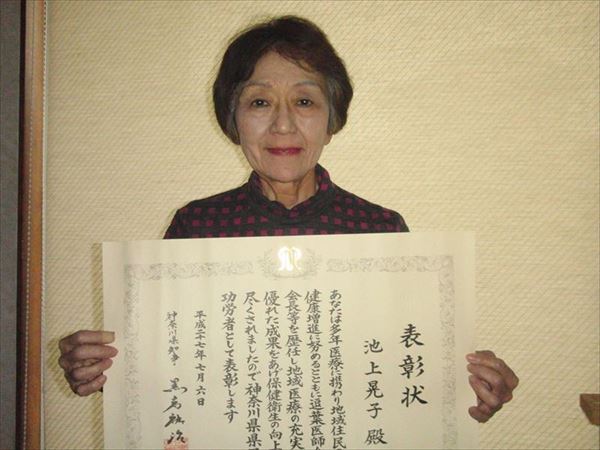 表彰状
池上晃子 殿
あなたは多年医療に携わり地域住民
健康増進に努めるとともに逗葉医師
会長等を歴任し地域医療の充実
優れた成果をあげ保健衛生の向上
尽くされましたので神奈川県県
功労者として表彰します
平成二十七年七月六日
神奈川県知事 黒岩祐治